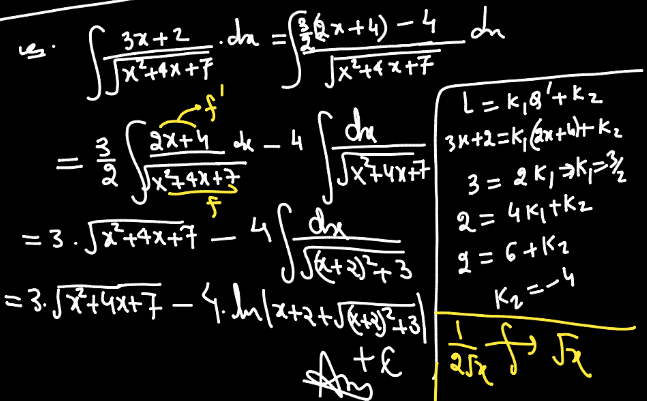 es. ∫ (3x+2)/√(x²+4x+7) · dx = ∫ (3/2(2x+4) - 4)/√(x²+4x+7) dx
= 3/2 ∫ (2x+4)/√(x²+4x+7) dx - 4 ∫ dx/√(x²+4x+7)
f'
f
= 3 · √(x²+4x+7) - 4 ∫ dx/√((x+2)²+3)
= 3 · √(x²+4x+7) - 4 · ln|x+2+√((x+2)²+3)|
+ C
Ans
L = K₁Q' + K₂
3x+2 = K₁(2x+4) + K₂
3 = 2K₁ → K₁ = 3/2
2 = 4K₁ + K₂
2 = 6 + K₂
K₂ = -4
1/(2√x) ∫→ √x